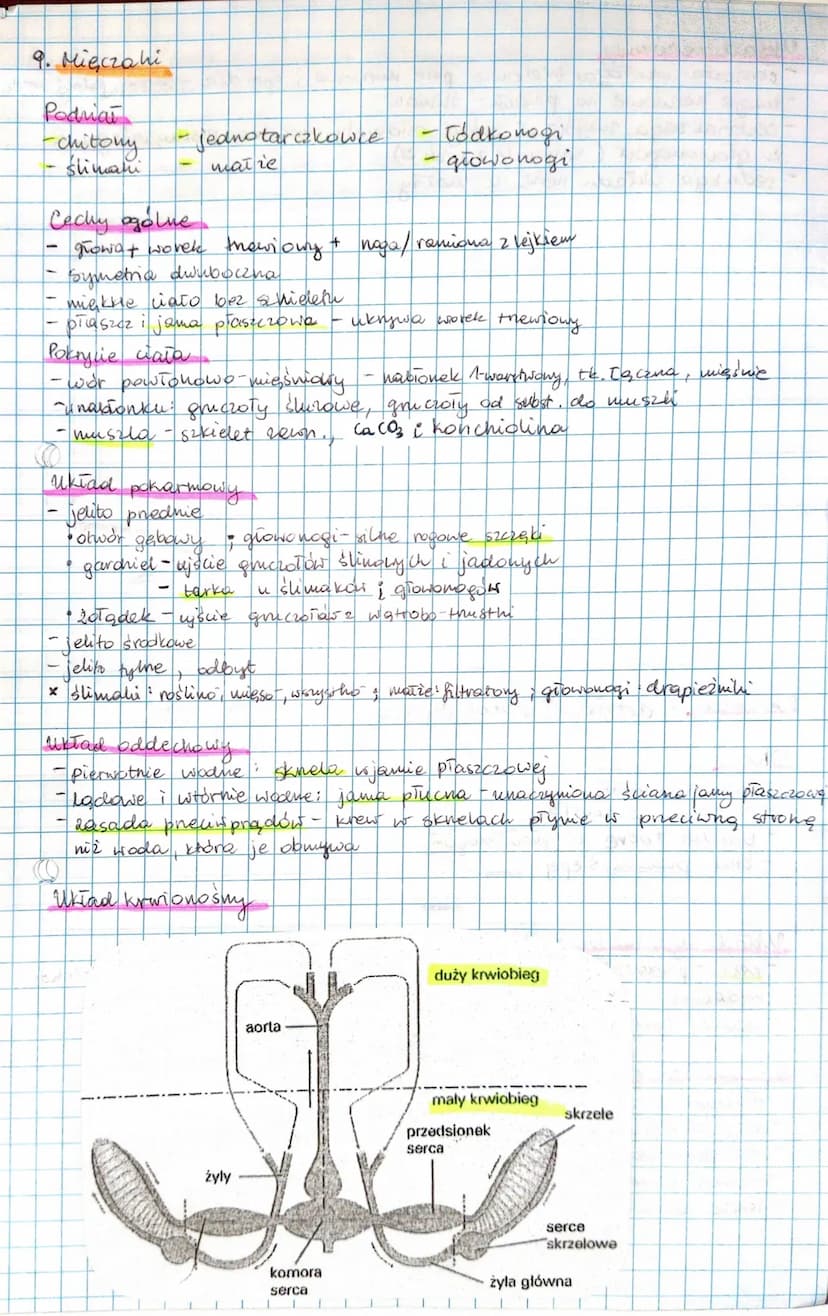 9. Mięczaki
Podział
- chitony - jednotarczkowce - łódkonogi
- ślimaki - małże - głowonogi
Cechy ogólne
- głowa + worek trzewiowy + noga/ramiona z lejkiem
- symetria dwuboczna
- miękkie ciało bez szkieletu
- płaszcz i jama płaszczowa - ukrywa worek trzewiowy
Pokrycie ciała
- wór powłokowo-mięśniowy - nabłonek 1-warstwowy, tk. łączna, mięśnie
- w nabłonku: gruczoły śluzowe, gruczoły od subst. do muszli
- muszla - szkielet zewn., CaCO3 i konchiolina
Układ pokarmowy
- jelito przednie
• otwór gębowy ; głowonogi - silne rogowe szczęki
• gardziel - ujście gruczołów ślinowych i jadowych
- tarka u ślimaków i głowonogów
• żołądek - ujście gruczołów z wątrobo-trzustki
- jelito środkowe
- jelito tylne, odbyt
x ślimaki: roślino-, mięso-, wszystko- ; małże: filtratory ; głowonogi: drapieżniki
Układ oddechowy
- pierwotnie wodne: skrzela w jamie płaszczowej
- lądowe i wtórnie wodne: jama płucna - unaczyniona ściana jamy płaszczową
- zasada przeciwprądów - krew w skrzelach płynie w przeciwną stronę
niż woda, która je obmywa
Układ krwionośny
duży krwiobieg
aorta
mały krwiobieg
skrzele
przedsionek
serca
żyły
serce
skrzelowe
komora
serca
żyła główna